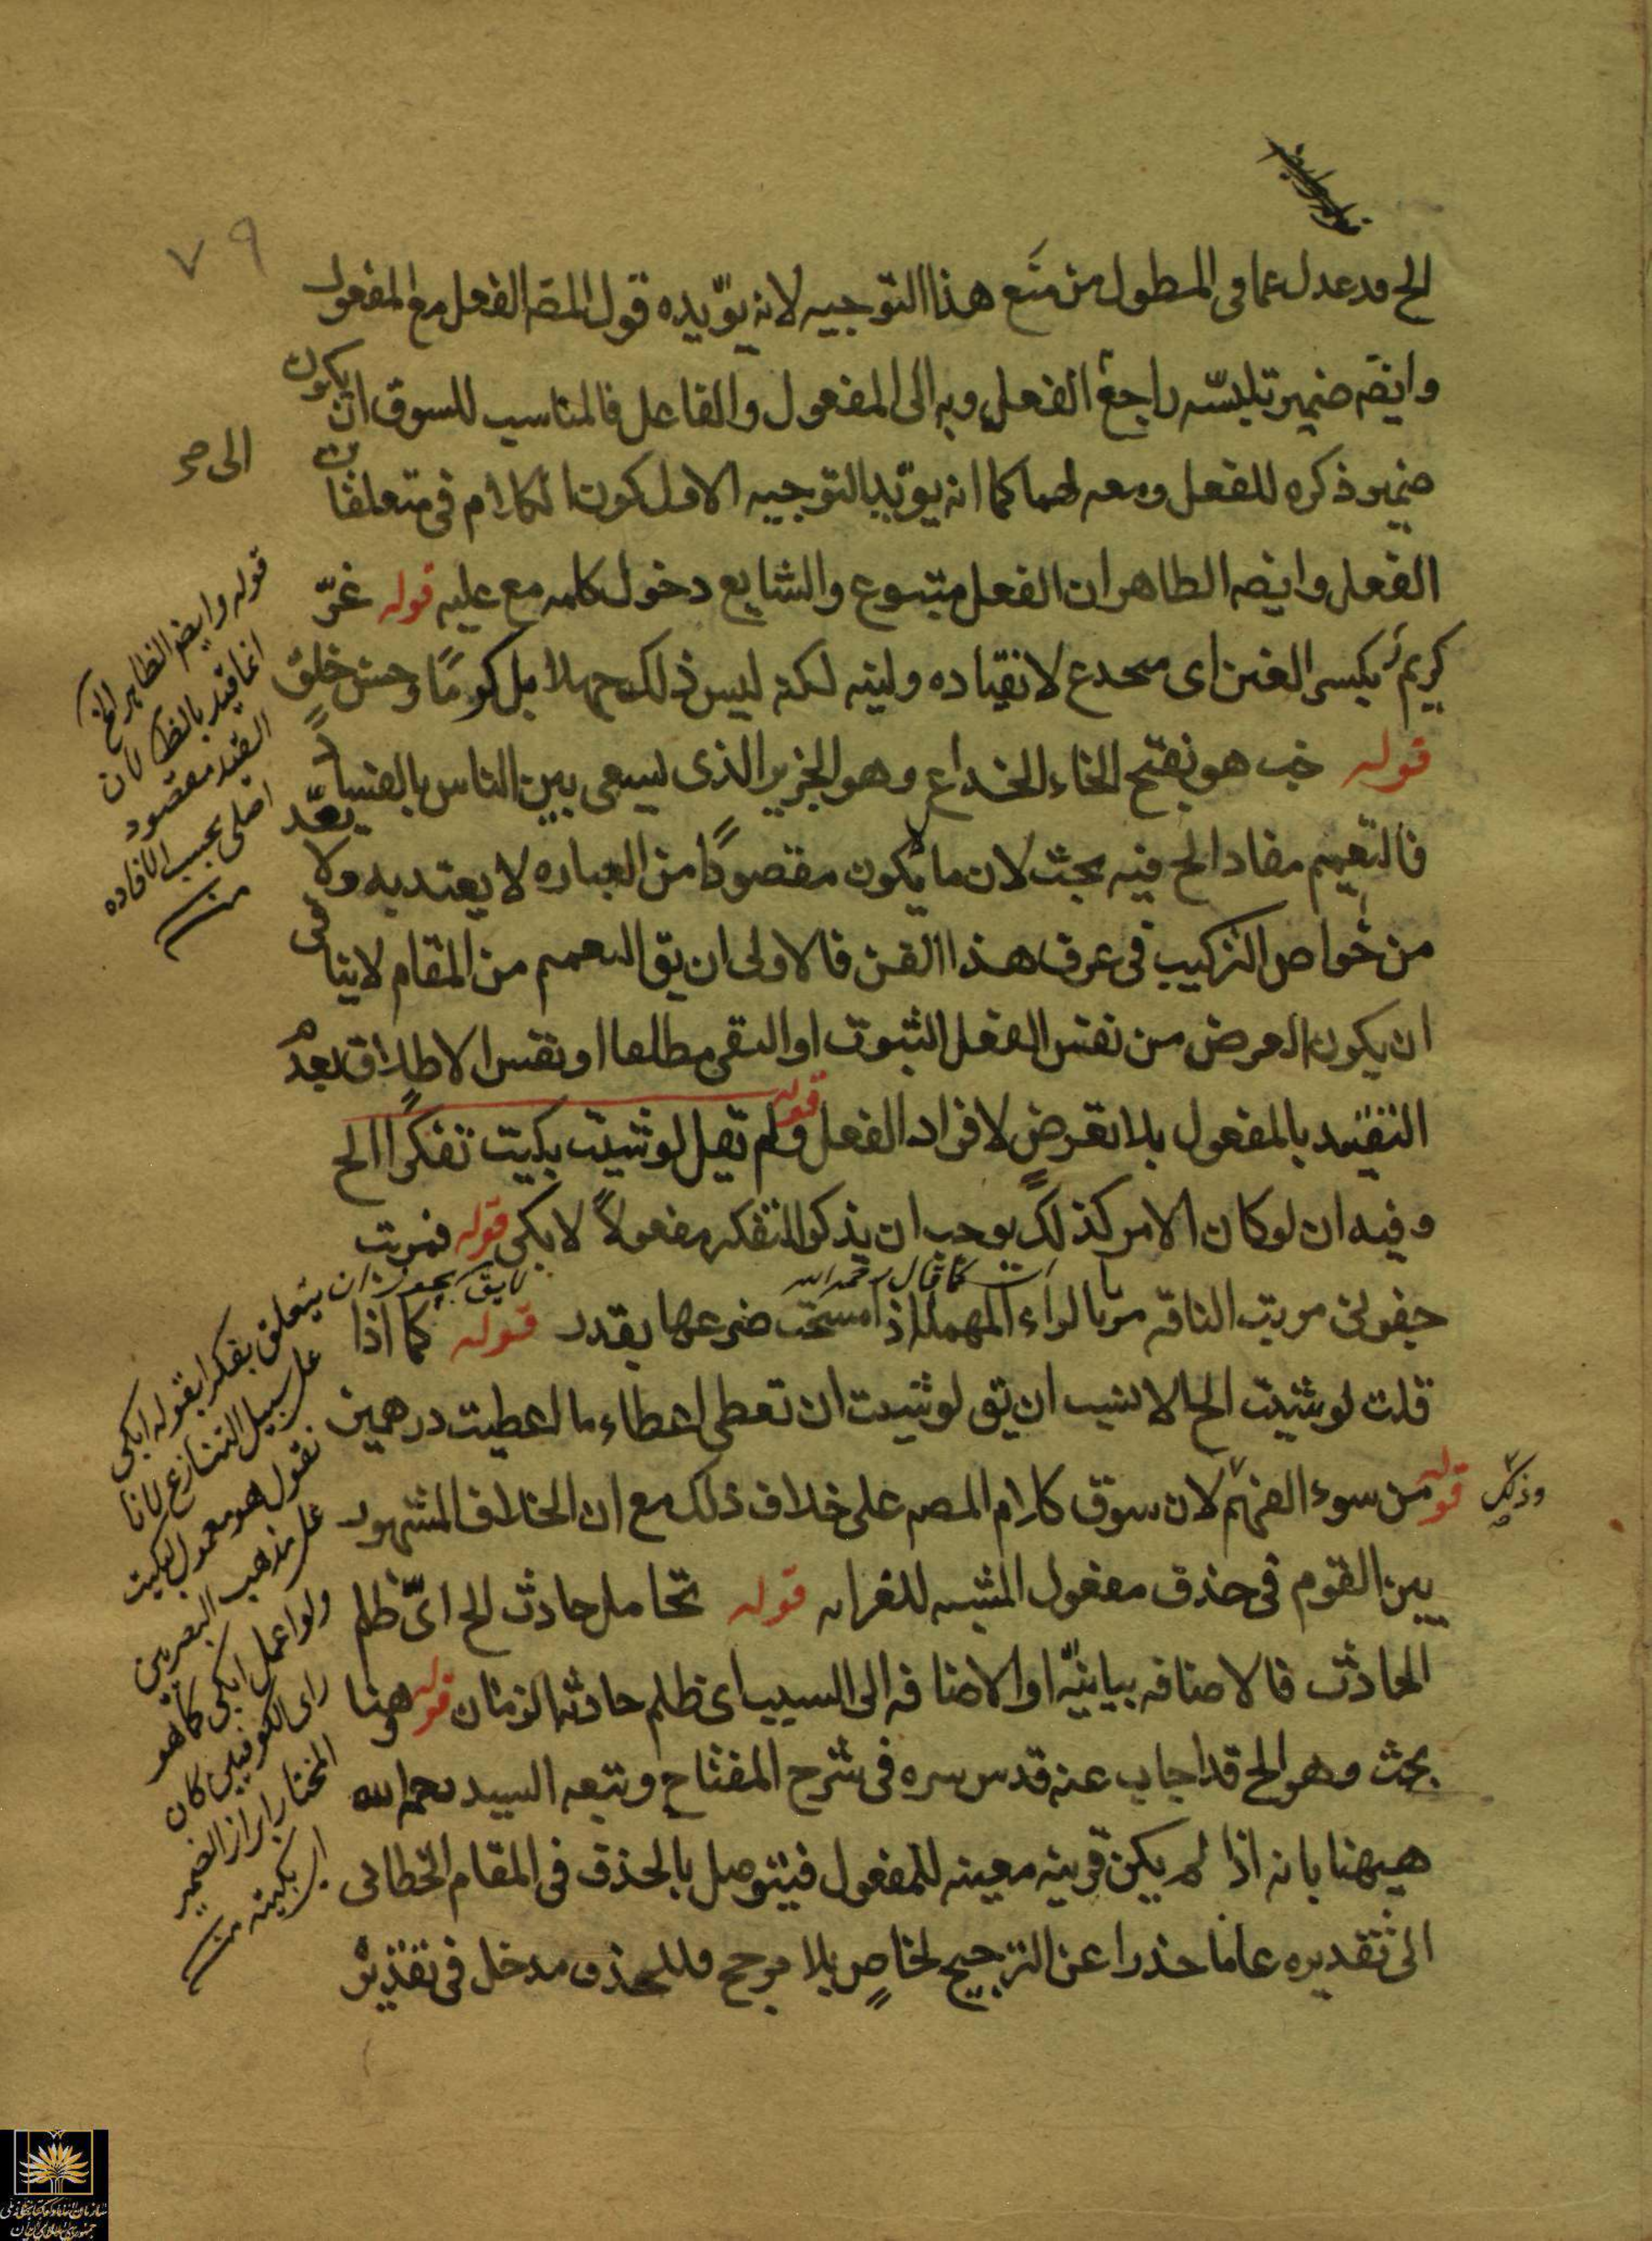 ٧٩
الخ قد عدل عما فى المطول من منع هذا التوجيه لانه يؤيده قول المصه الفعل مع المفعول
وايضه ضمير تلبسه راجع الفعل وبه الى المفعول والفاعل فالمناسب للسوق ان يكون
ضمير ذكره للفعل ومعه لهما كما انه يؤيد التوجيه الاول كون الكلام فى متعلقات
الفعل وايضه الظاهر ان الفعل متبوع والشايع دخول كلمه مع عليه قوله غرّ
كريم بكسر الغين اى منخدع لانقياده ولينه لكنه ليس ذلك جهلا بل كرمًا وحسن خلق
قوله خب هو بفتح الخاء الخداع وهو الجزير الذى ليسعى بين الناس بالفساد
فالتعميم مفاد الخ فيه بحث لان ما لا يكون مقصودًا من العباره لا يعتد به ولا يعدّ
من خواص التركيب فى عرف هذا الفن فالاولى ان يق التعميم من المقام لا ينافى
ان يكون الغرض من نفس الفعل الثبوت او النفى مطلقا او نفس الاطلاق بعدم
التقييد بالمفعول بلا تعرض لافراد الفعل قوله ولم تقل لو شيت بكيت تفكرا الخ
وفيه ان لو كان الامر كذلك يوجب ان يذكر التفكر مفعولاً لابكى قوله فمريت
كما قال رحمه الله
جفونى مريت الناقه مريا بالراء المهمله اذا مسحت ضرعها بقدر قوله كما اذا
قلت لو شيت الخ الانسب ان يق لو شيت ان تعطى اعطاء ما اعطيت درهمين
قوله من سوء الفهم لان سوق كلام المصه على خلاف ذلك مع ان الخلاف المشهور
وذلك
بين القوم فى حذف مفعول المثبه للغرابه قوله تحامل حادث الخ اى ظلم
الحادث فالاضافه بيانيّه او الاضافه الى السبب اى ظلم حادثه الزمان قوله وهنا
بحث وهو الخ قد اجاب عنه قدس سره فى شرح المفتاح وتبعه السيد رحمه الله
هيهنا بانه اذا لم يكن قرينه معينه للمفعول فيتوصل بالحذف فى المقام الخطابى
الى تقديره عاما حذرا عن الترجيح لخاص بلا مرجح فللحذف مدخل فى تقدير
قوله وايضه الظاهر الخ
انما قيد بالظ لان
القيد مقصود
اصلى بحسب الافاده
منه
لا يق يجوز ان يتعلق تفكرا بقوله ابكى
على سبيل التنازع لانا
نقول هو معمول لبكيت
على مذهب البصريين
ولو اعمل ابكى كما هو
راى الكوفيين كان
المختار ابراز الضمير
اى بكيته منه